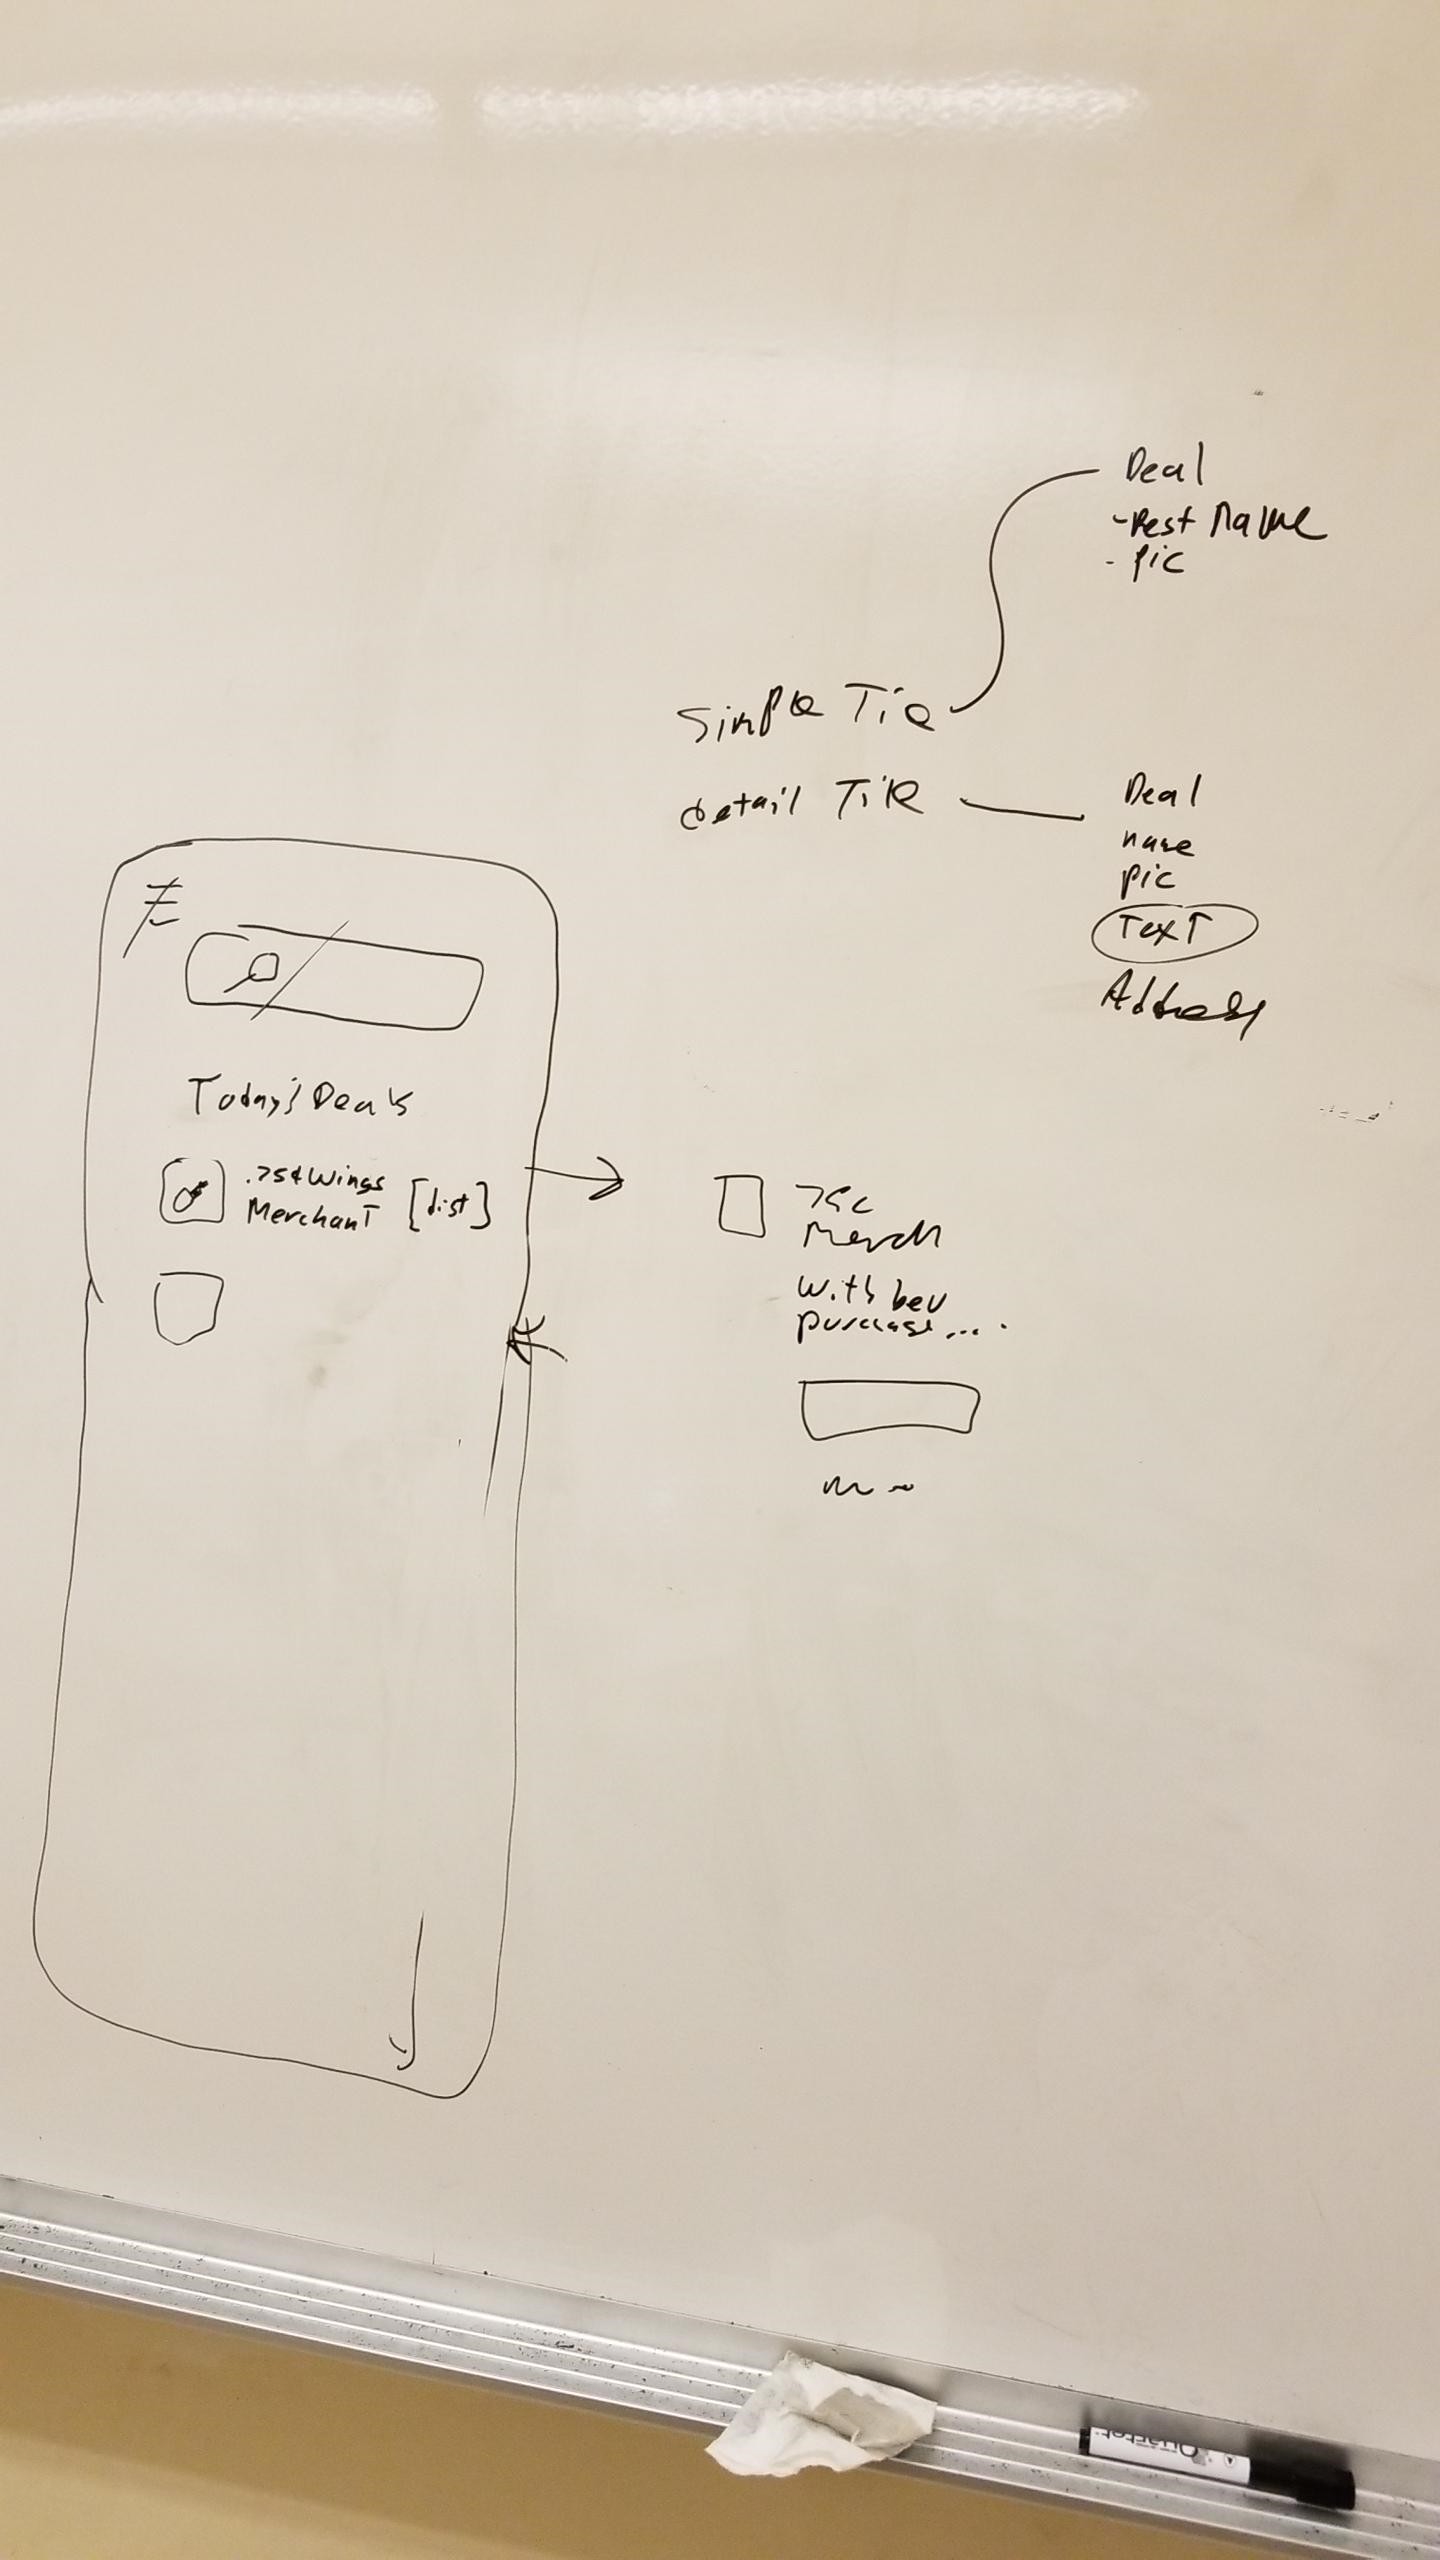 Deal
-Rest Name
- pic
Simple Tile
detail Tile
Deal
name
pic
Text
Address
Today's Deals
.75¢ Wings
Merchant [dist]
75c
Merch
with bev
purchase....
Quartet